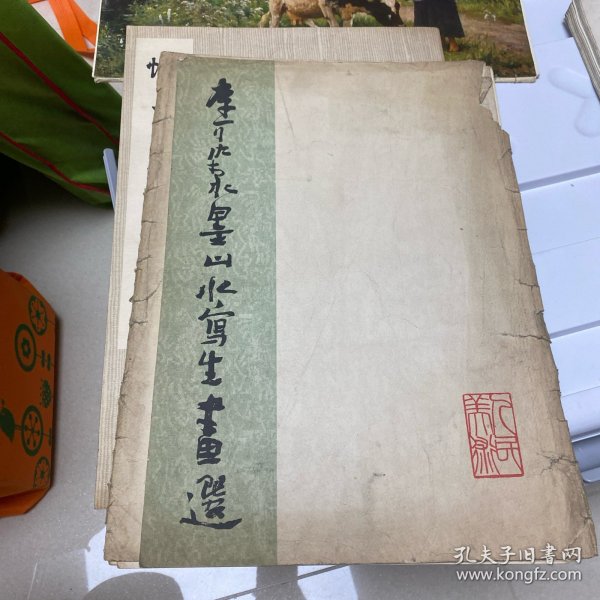 李可染水墨山水寫生畫選
人民
美術
孔夫子旧书网
www.kongfz.com